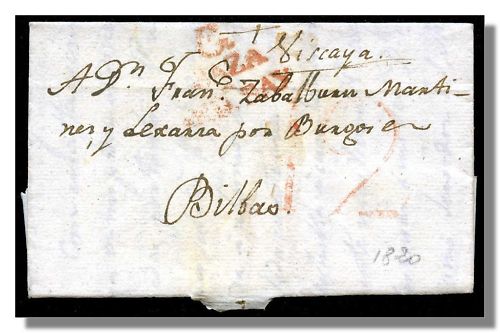 Viscaya.
A Dn. Franco. Zabalburu Marti-
nez, y Lexarza por Burgos en
Bilbao.
1820